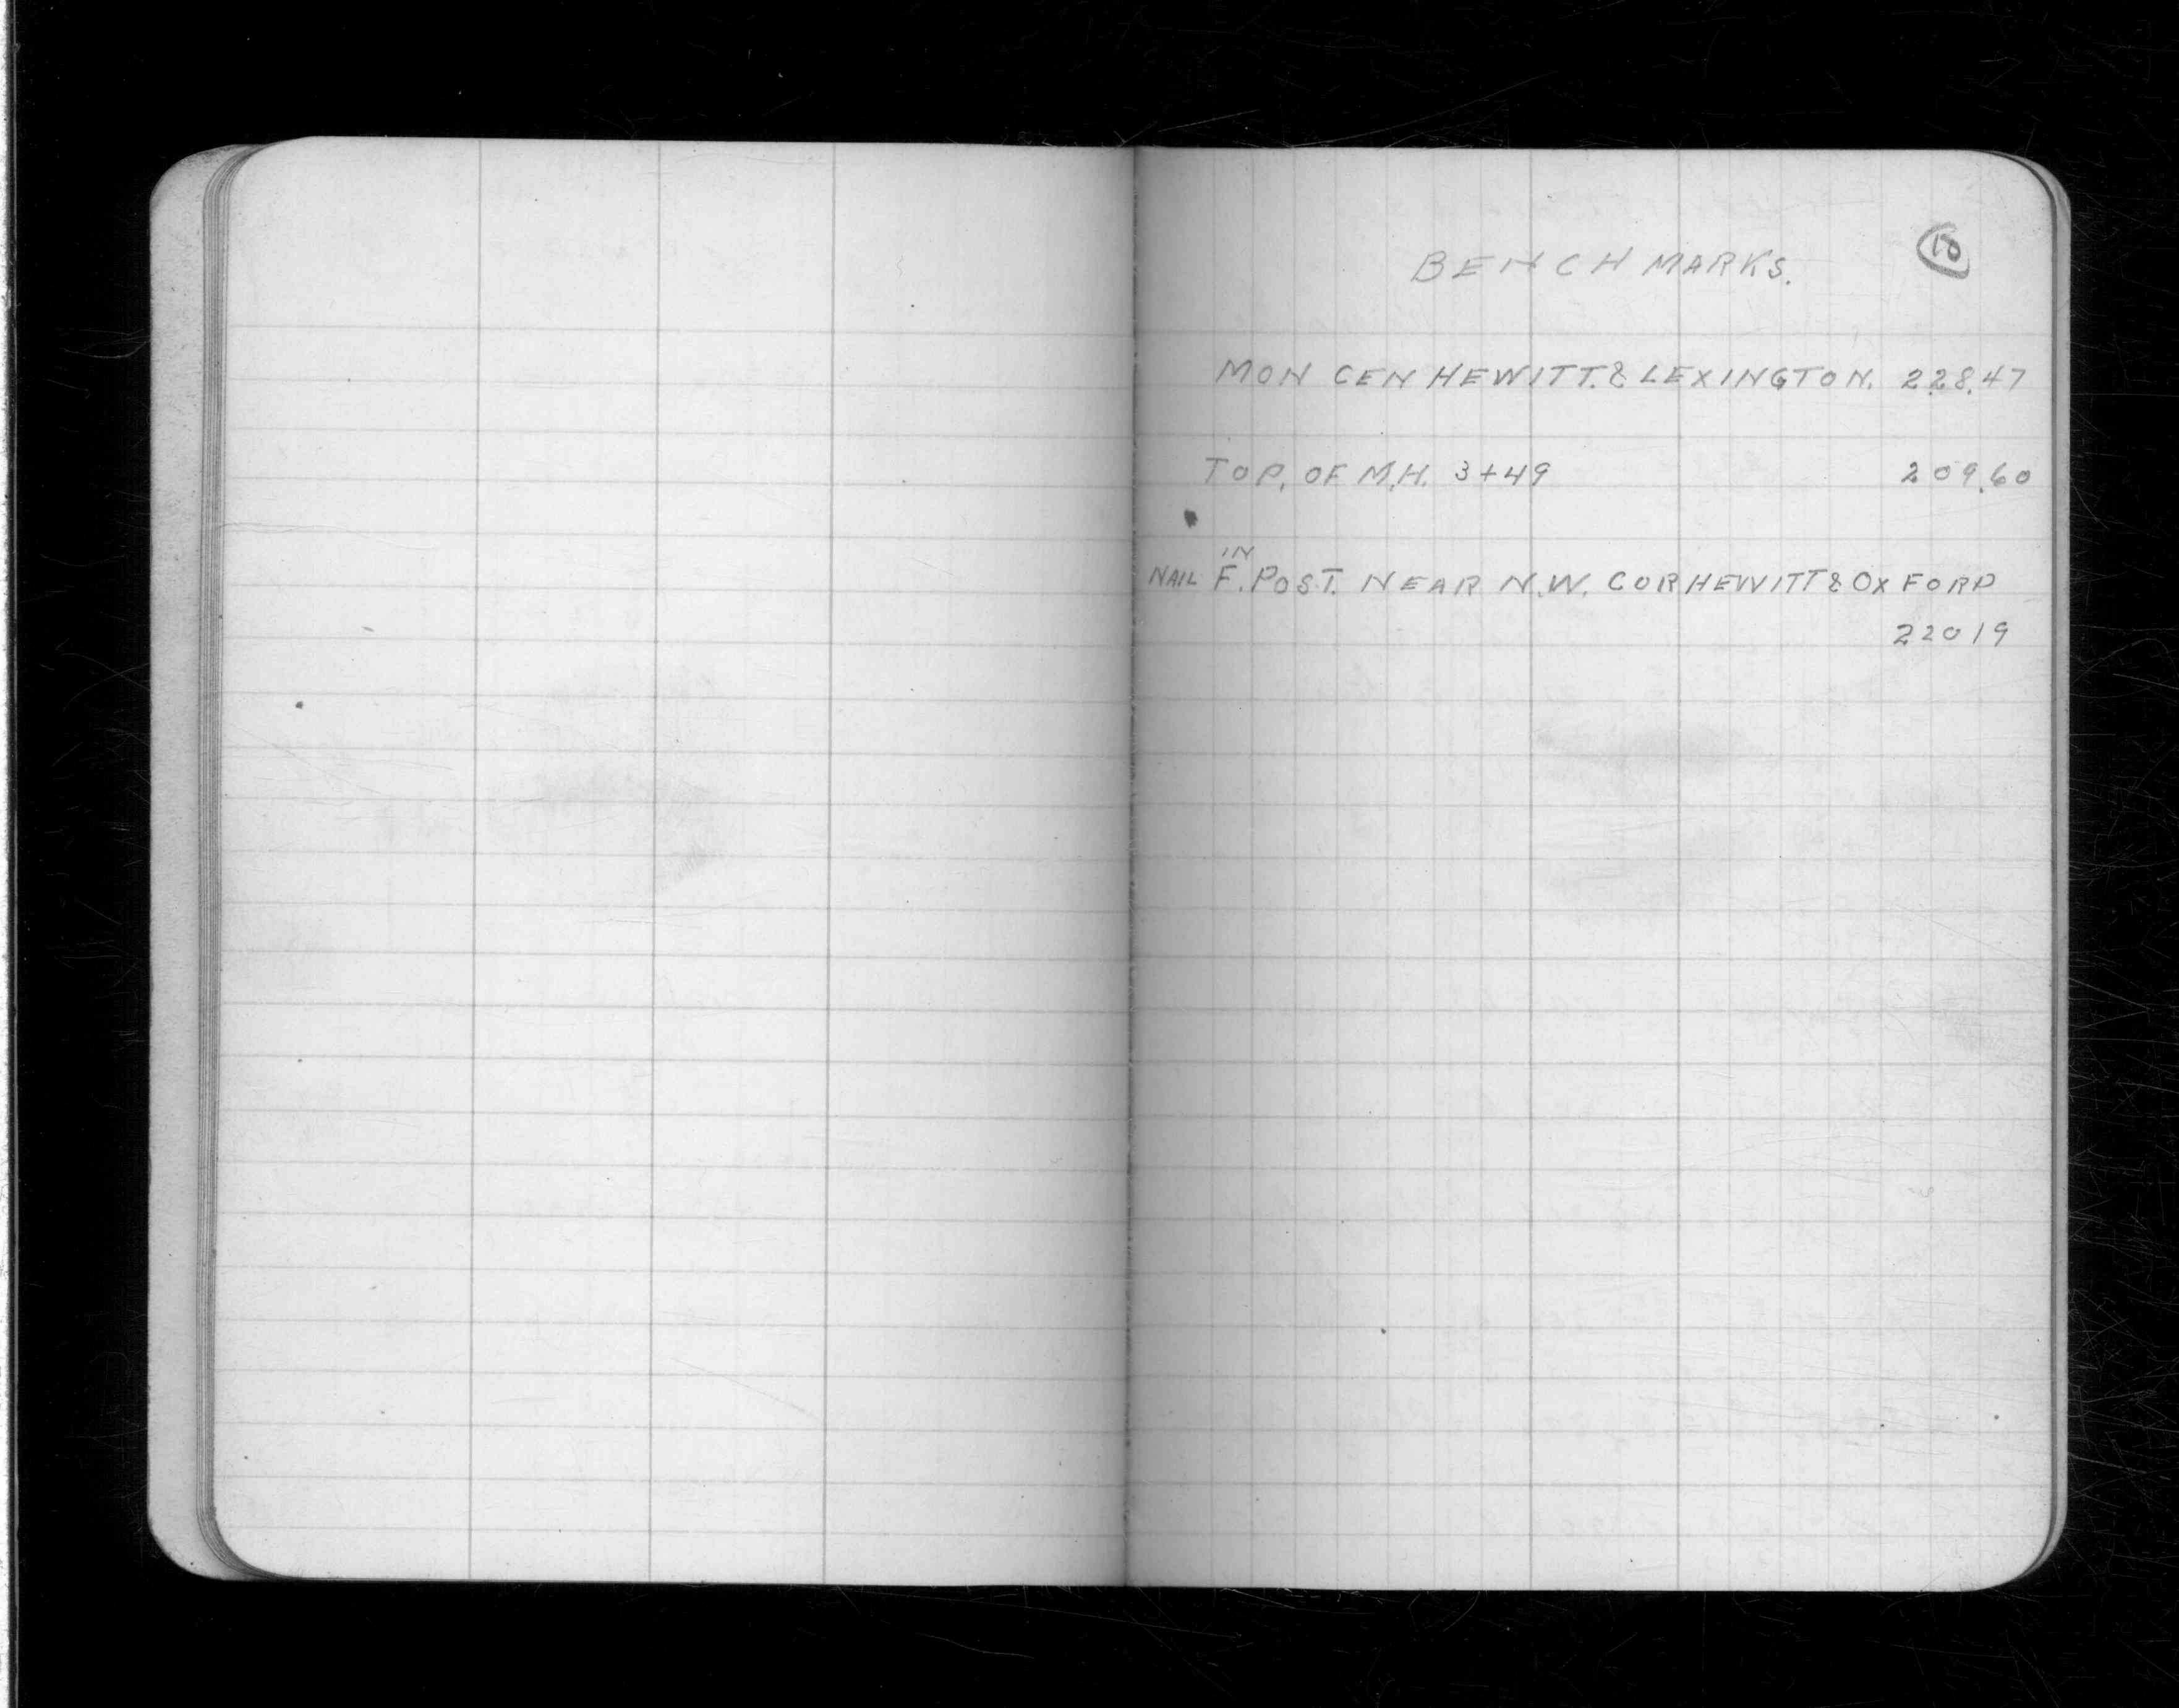 10
BENCH MARKS.
MON CEN HEWITT. & LEXINGTON. 228.47
TOP. OF M.H. 3+49 209.60
IN
NAIL F. POST. NEAR N.W. COR HEWITT & OXFORD
22019